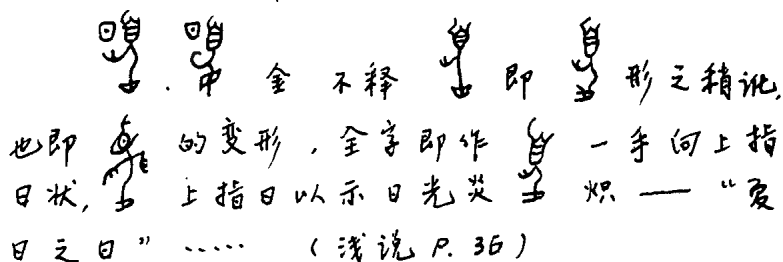 . 金 不释 即 形之稍讹,
也即 的变形,全字即作 一手向上指
日状, 上指日以示日光炎 炽——“夏
日之日”……(浅说 P. 36)